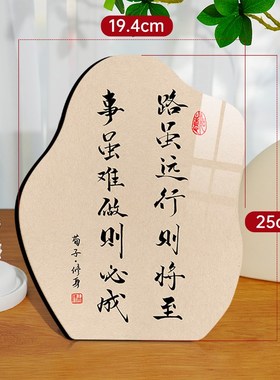 19.4cm
路虽远行则将至
事虽难做则必成
荀子·修身
25c